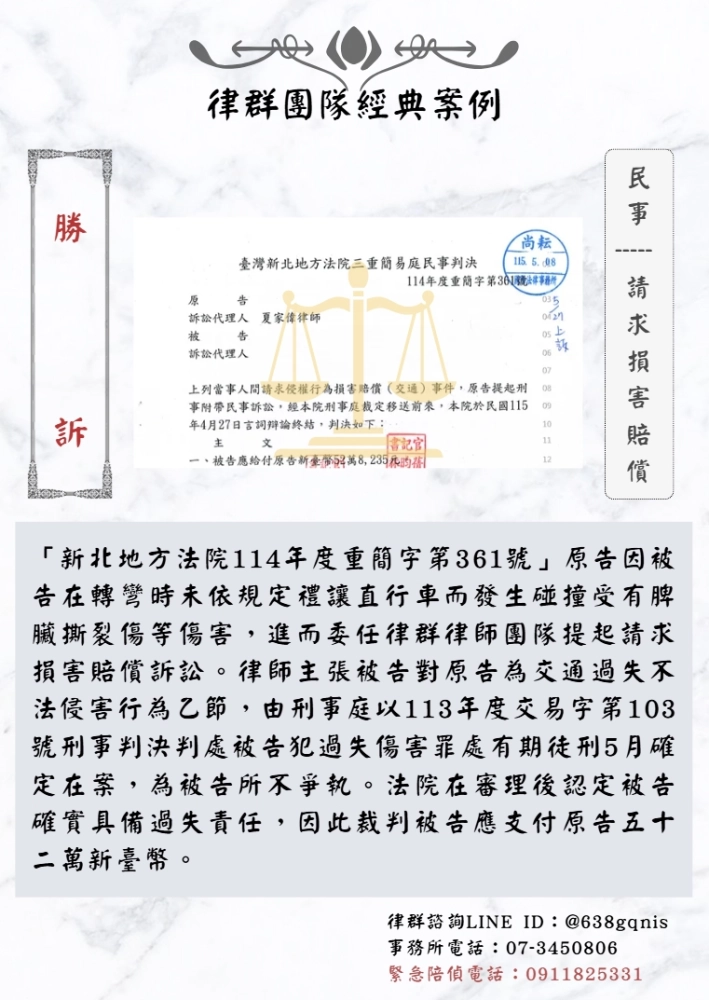 律群團隊經典案例
勝訴
民事-----請求損害賠償
臺灣新北地方法院三重簡易庭民事判決
114年度重簡字第361號
尚耘
115. 5. 08
原　　　告
訴訟代理人　夏家偉律師
被　　　告
訴訟代理人
上列當事人間請求侵權行為損害賠償（交通）事件，原告提起刑
事附帶民事訴訟，經本院刑事庭裁定移送前來，本院於民國115
年4月27日言詞辯論終結，判決如下：
主　　文
一、被告應給付原告新臺幣52萬8,235元
書記官
03
04
05
06
07
08
09
10
11
12
5/27上訴
「新北地方法院114年度重簡字第361號」原告因被
告在轉彎時未依規定禮讓直行車而發生碰撞受有脾
臟撕裂傷等傷害，進而委任律群律師團隊提起請求
損害賠償訴訟。律師主張被告對原告為交通過失不
法侵害行為乙節，由刑事庭以113年度交易字第103
號刑事判決判處被告犯過失傷害罪處有期徒刑5月確
定在案，為被告所不爭執。法院在審理後認定被告
確實具備過失責任，因此裁判被告應支付原告五十
二萬新臺幣。
律群諮詢LINE ID：@638gqnis
事務所電話：07-3450806
緊急陪偵電話：0911825331